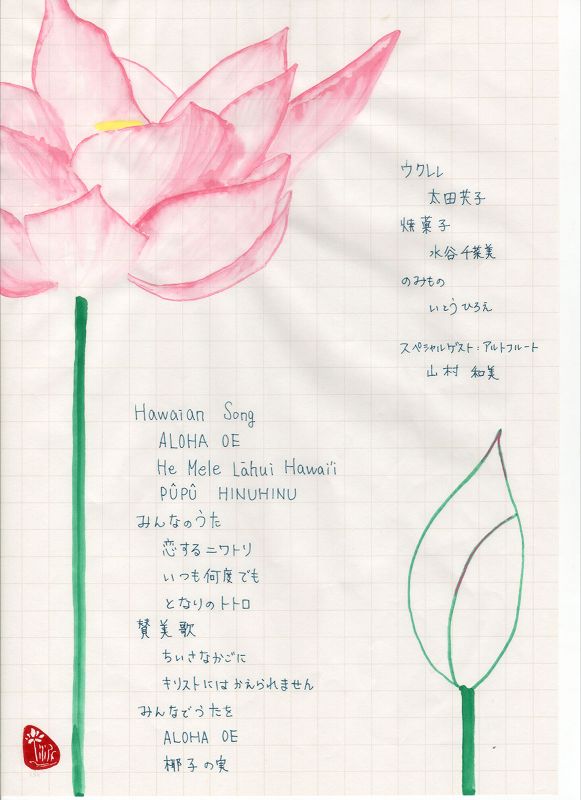 ウクレレ
太田芙子
焼菓子
水谷千菜美
のみもの
いとうひろえ
スペシャルゲスト:アルトフルート
山村 和美
Hawaian Song
ALOHA OE
He Mele Lāhui Hawai'i
PÛPÛ HINUHINU
みんなのうた
恋するニワトリ
いつも何度でも
となりのトトロ
賛美歌
ちいさなかごに
キリストにはかえられません
みんなでうたを
ALOHA OE
椰子の実